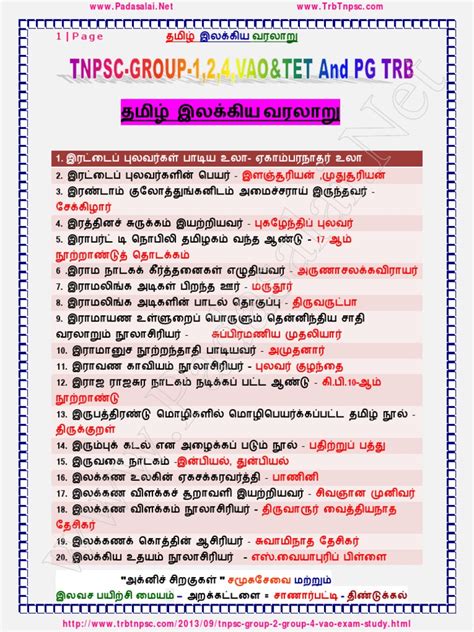 www.Padasalai.Net
www.TrbTnpsc.com
1 | Page
தமிழ் இலக்கிய வரலாறு
TNPSC-GROUP-1,2,4,VAO&TET And PG TRB
தமிழ் இலக்கிய வரலாறு
1. இரட்டைப் புலவர்கள் பாடிய உலா- ஏகாம்பரநாதர் உலா
2. இரட்டைப் புலவர்களின் பெயர் - இளஞ்சூரியன் ,முதுசூரியன்
3. இரண்டாம் குலோத்துங்கனிடம் அமைச்சராய் இருந்தவர் -
சேக்கிழார்
4. இரத்தினச் சுருக்கம் இயற்றியவர் - புகழேந்திப் புலவர்
5. இராபர்ட் டி நொபிலி தமிழகம் வந்த ஆண்டு - 17 ஆம்
நூற்றாண்டுத் தொடக்கம்
6 .இராம நாடகக் கீர்த்தனைகள் எழுதியவர் - அருணாசலக்கவிராயர்
7. இராமலிங்க அடிகள் பிறந்த ஊர் - மருதூர்
8. இராமலிங்க அடிகளின் பாடல் தொகுப்பு - திருவருட்பா
9. இராமாயண உள்ளுறைப் பொருளும் தென்னிந்திய சாதி
வரலாறும் நூலாசிரியர் - சுப்பிரமணிய முதலியார்
10. இராமானுச நூற்றந்தாதி பாடியவர் - அமுதனார்
11. இராவண காவியம் நூலாசிரியர் - புலவர் குழந்தை
12. இராஜ ராஜசுர நாடகம் நடிக்கப் பட்ட ஆண்டு - கி.பி.10-ஆம்
நூற்றாண்டு
13. இருபத்திரண்டு மொழிகளில் மொழிபெயர்க்கப்பட்ட தமிழ் நூல் -
திருக்குறள்
14. இரும்புக் கடல் என அழைக்கப் படும் நூல் - பதிற்றுப் பத்து
15. இருவகை நாடகம் -இன்பியல், துன்பியல்
16. இலக்கண உலகின் ஏகசக்கரவர்த்தி - பாணினி
17. இலக்கண விளக்கச் சூறாவளி இயற்றியவர் - சிவஞான முனிவர்
18. இலக்கண விளக்கம் நூலாசிரியர் - திருவாரூர் வைத்தியநாத
தேசிகர்
19. இலக்கணக் கொத்தின் ஆசிரியர் - சுவாமிநாத தேசிகர்
20. இலக்கிய உதயம் நூலாசிரியர் - எஸ்.வையாபுரிப் பிள்ளை
"அக்னிச் சிறகுகள் " சமூகசேவை மற்றும்
இலவச பயிற்சி மையம் – அறக்கட்டளை = சாணார்பட்டி - திண்டுக்கல்
http://www.trbtnpsc.com/2013/09/tnpsc-group-2-group-4-vao-exam-study.html